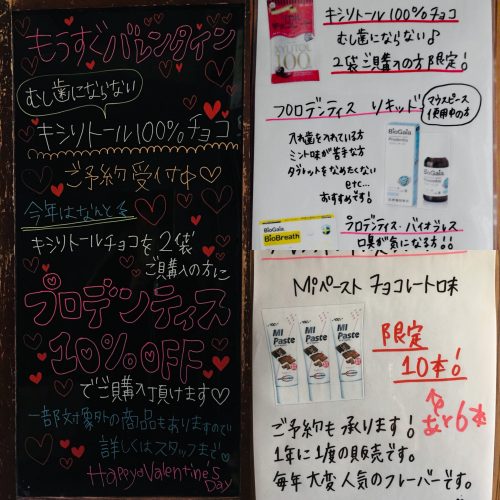 もうすぐバレンタイン
むし歯にならない
キシリトール100%チョコ
ご予約受付中
今年はなんと
キシリトールチョコを2袋
ご購入の方に
プロデンティス
10% OFF
でご購入頂けます
一部対象外の商品もありますので
詳しくはスタッフまで
Happy Valentine's
Day
XYLITOL
100
キシリトール100%チョコ
むし歯にならない♪
2袋ご購入の方限定!
プロデンティス リキッド
マウスピース
使用中の方
入れ歯を入れている方
ミント味が苦手な方
タブレットをなめたくない
etc...
おすすめです!
BioGaia
Prodentis
BioGaia
BioBreath
プロデンティス・バイオブレス
口臭が気になる方!!
MIペースト チョコレート味
MI
Paste
MI
Paste
MI
Paste
限定
10本!
あと6本
ご予約も承ります!
1年に1度の販売です。
毎年大変人気のフレーバーです。